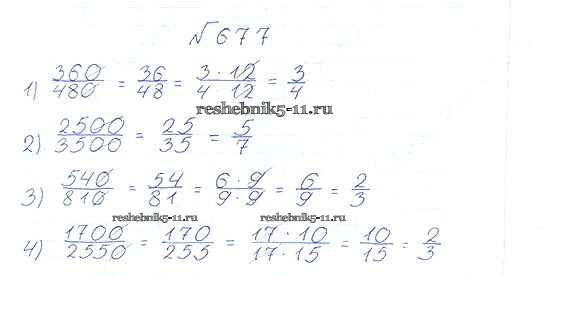 №677
1) 360/480 = 36/48 = 3·12/4·12 = 3/4
reshebnik5-11.ru
2) 2500/3500 = 25/35 = 5/7
3) 540/810 = 54/81 = 6·9/9·9 = 6/9 = 2/3
reshebnik5-11.ru reshebnik5-11.ru
4) 1700/2550 = 170/255 = 17·10/17·15 = 10/15 = 2/3